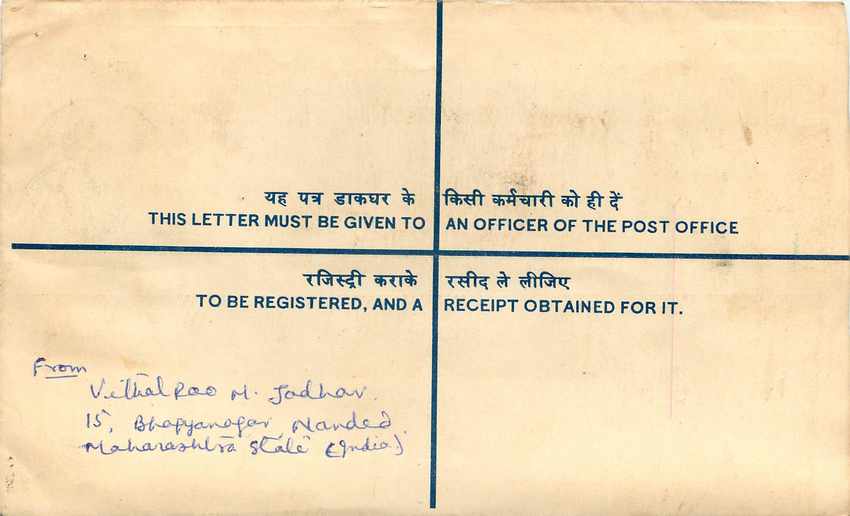 यह पत्र डाकघर के किसी कर्मचारी को ही दें
THIS LETTER MUST BE GIVEN TO AN OFFICER OF THE POST OFFICE
रजिस्ट्री कराके रसीद ले लीजिए
TO BE REGISTERED, AND A RECEIPT OBTAINED FOR IT.
From
Vithal Rao M. Jadhav.
15, Bhagyanagar, Nanded.
Maharashtra State (India)